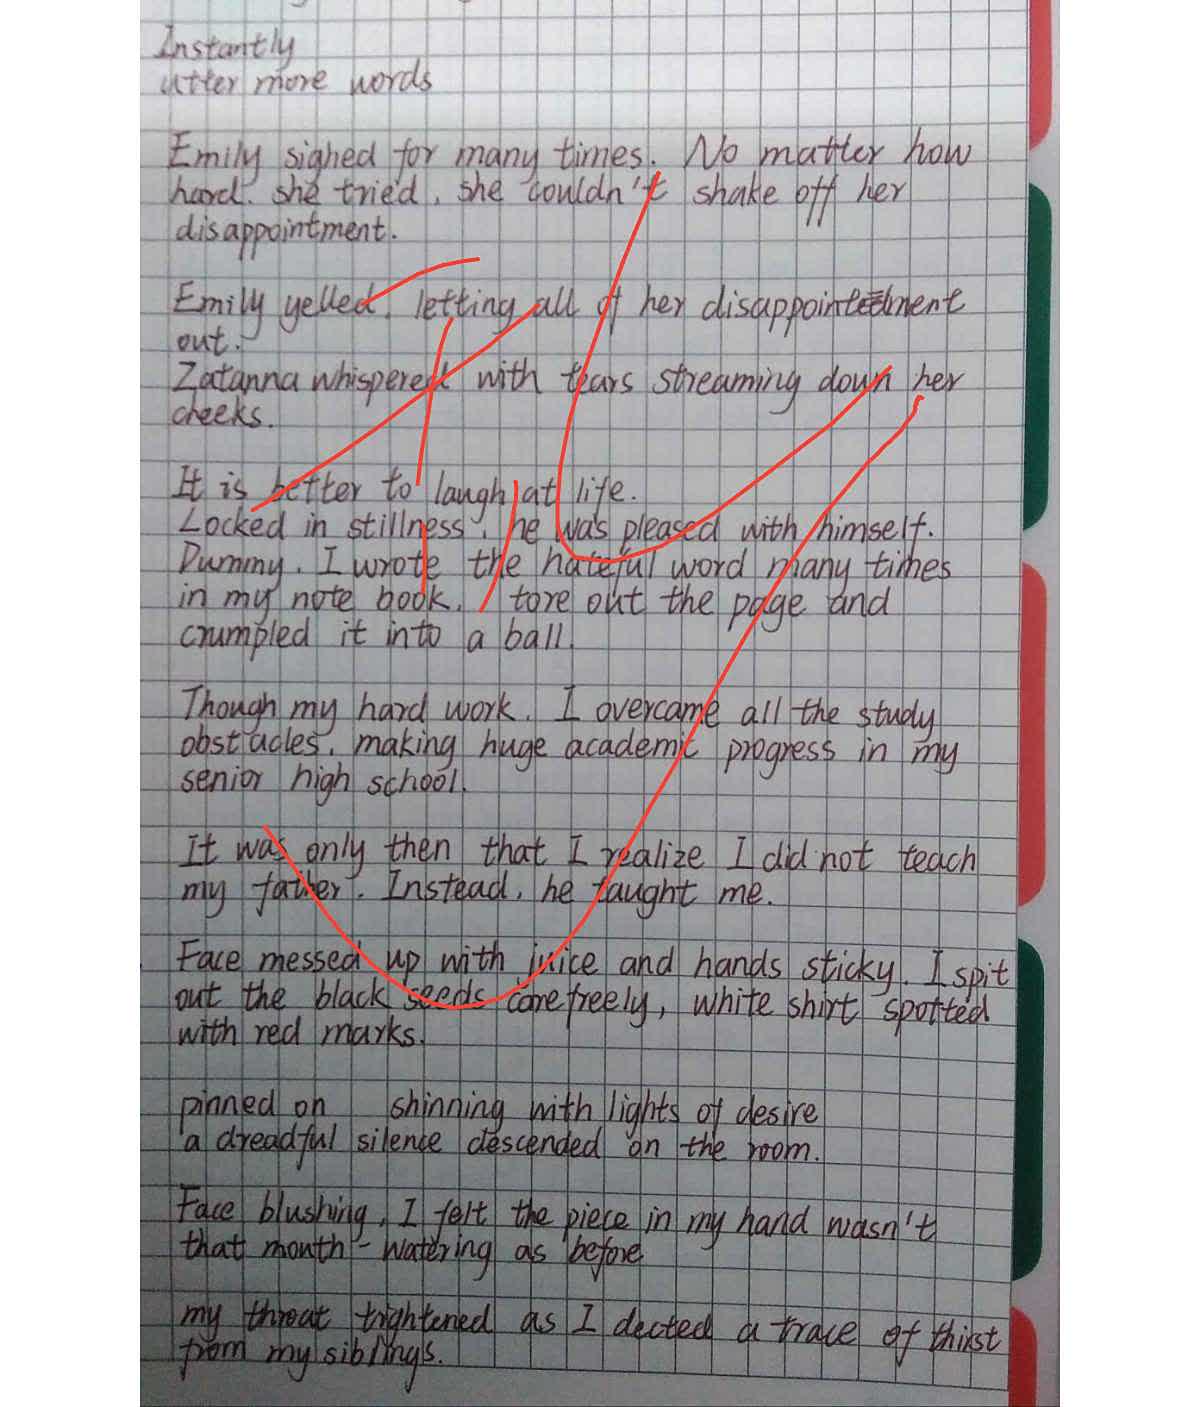 Instantly
utter more words
Emily sighed for many times. No matter how
hard. she tried, she couldn't shake off her
disappointment.
Emily yelled, letting all of her disappointment
out.
Zatanna whispered with tears streaming down her
cheeks.
It is better to laugh at life.
Locked in stillness, he was pleased with himself.
Dummy. I wrote the hateful word many times
in my note book. I tore out the page and
crumpled it into a ball.
Though my hard work. I overcame all the study
obstacles, making huge academic progress in my
senior high school.
It was only then that I realize I did not teach
my father. Instead, he taught me.
Face messed up with juice and hands sticky. I spit
out the black seeds carefreely, white shirt spotted
with red marks.
pinned on shinning with lights of desire
a dreadful silence descended on the room.
Face blushing, I felt the piece in my hand wasn't
that month-watering as before
my throat tightened as I dected a trace of thirst
from my siblings.